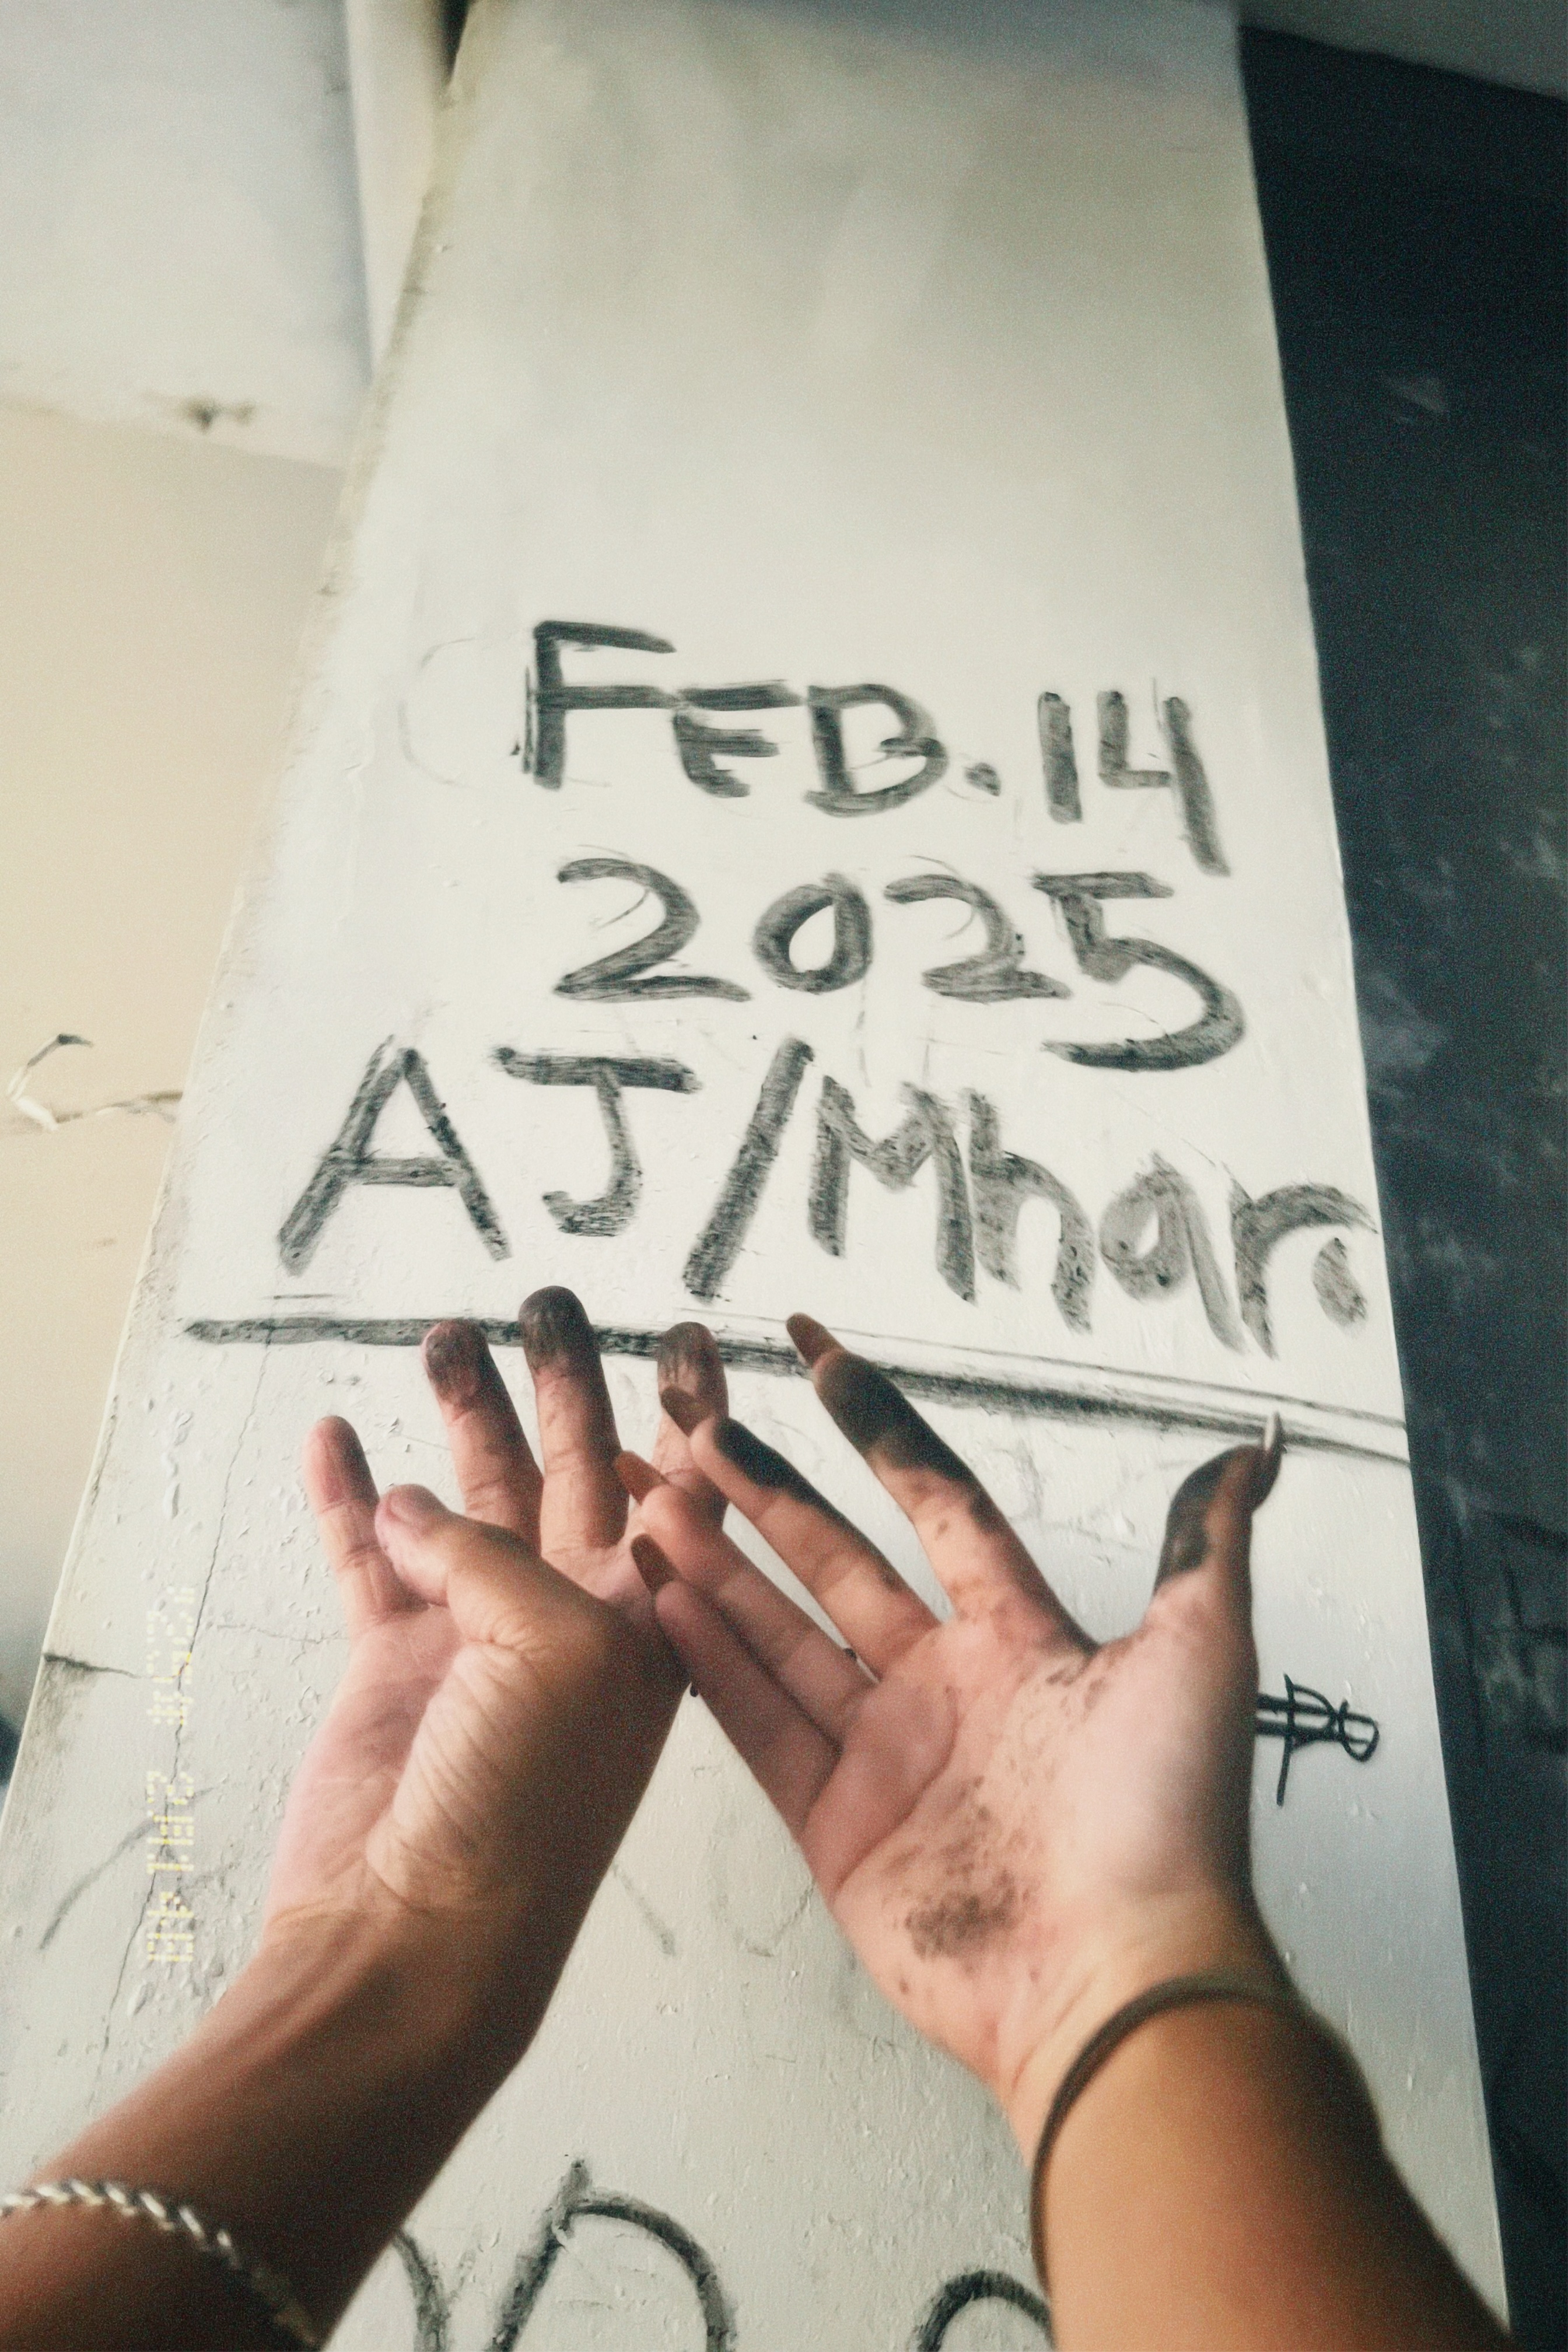 FEB. 14
2025
AJ/Mhar